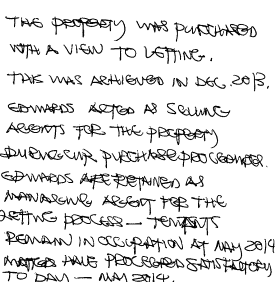 THE PROPERTY WAS PURCHASED
WITH A VIEW TO LETTING.
THIS WAS ACHIEVED IN DEC. 2013.
EDWARDS ACTED AS SELLING
AGENTS FOR THE PROPERTY
DURING OUR PURCHASE PROCEDURE.
EDWARDS ARE RETAINED AS
MANAGING AGENT FOR THE
LETTING PROCESS — TENANTS
REMAIN IN OCCUPATION AT MAY 2014
MATTERS HAVE PROCEEDED SATISFACTORY
TO DATE — MAY 2014.